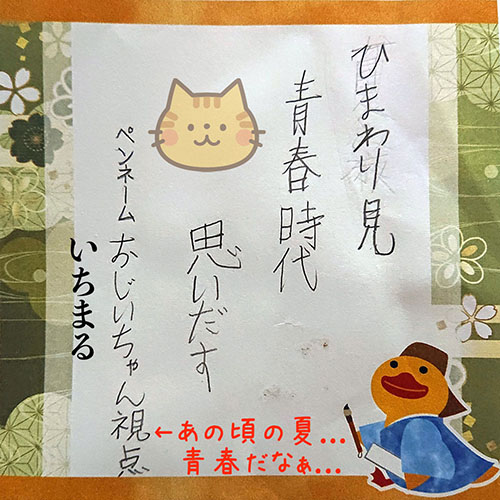 ひまわり見
青春時代
思いだす
ペンネーム おじいちゃん視点
いちまる
←あの頃の夏...
青春だなぁ...